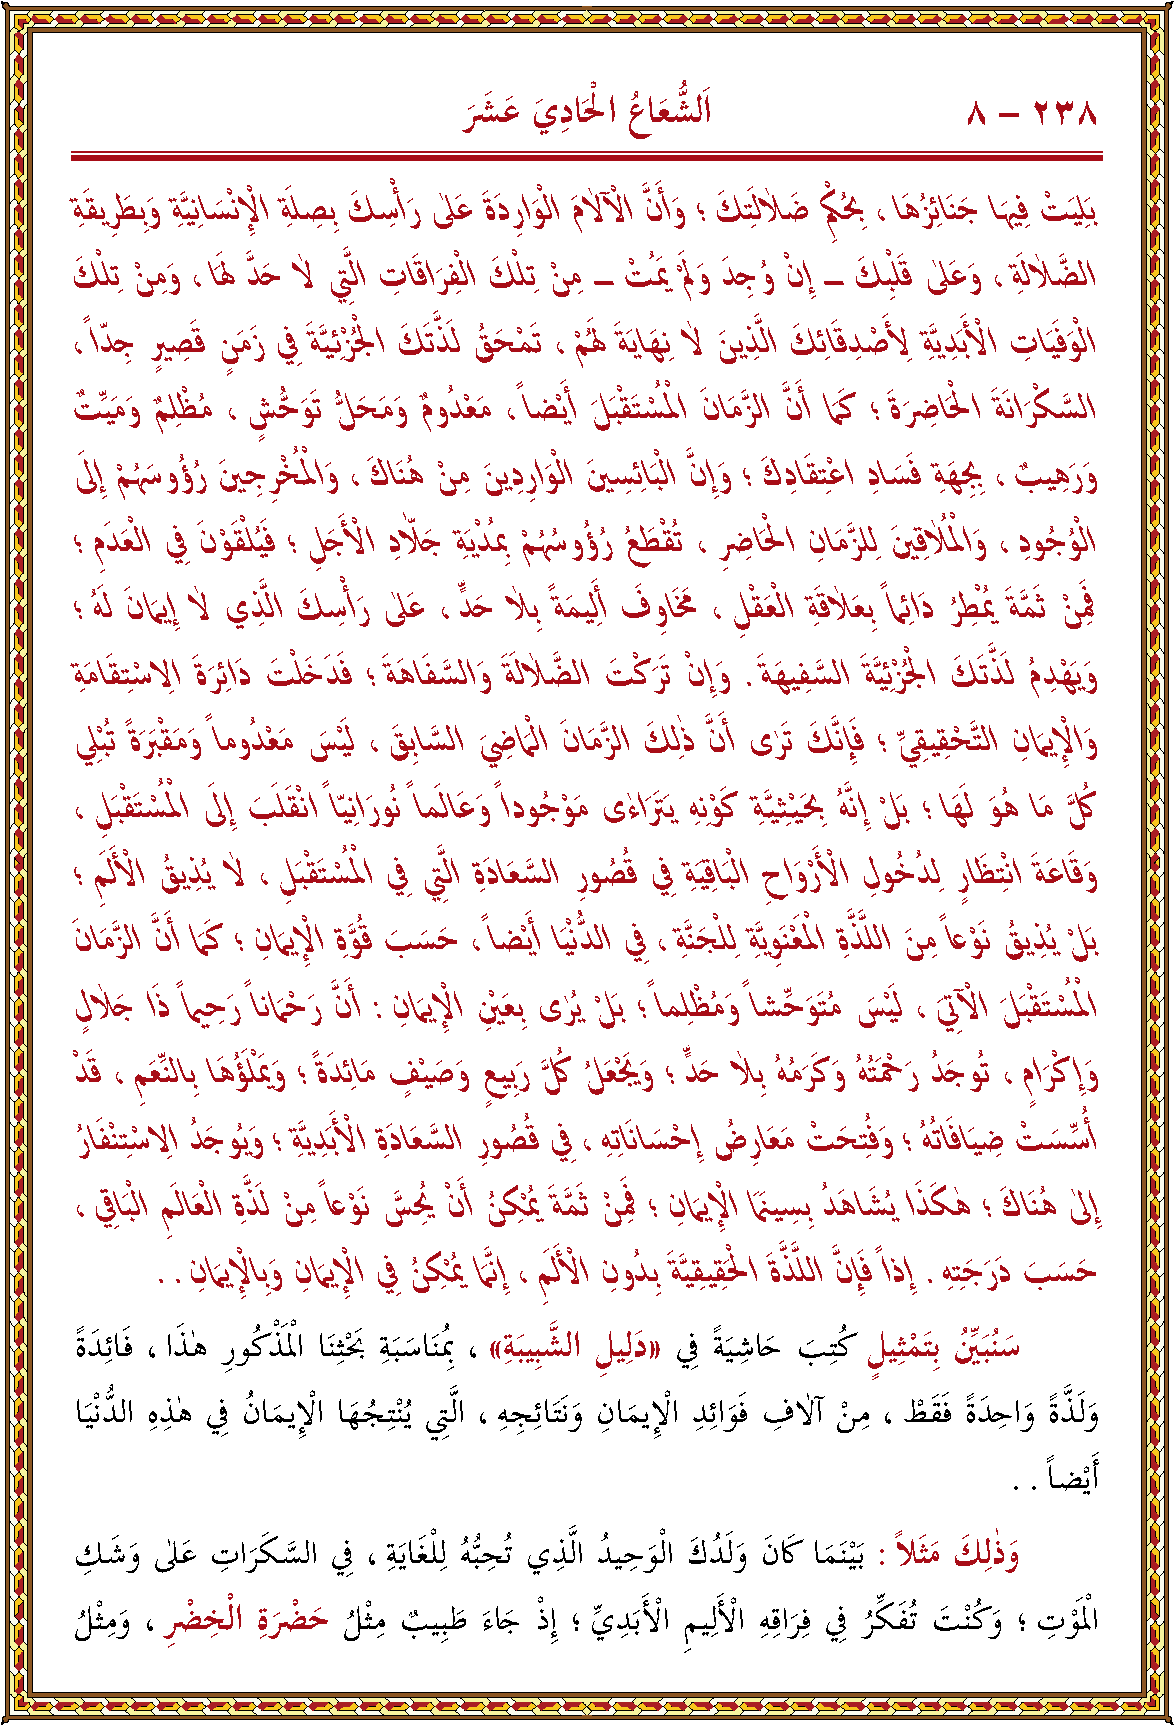 ٢٣٨ – ٨ اَلشُّعَاعُ الْحَادِيَ عَشَرَ
بَلِيَتْ فِيهَا جَنَائِزُهَا ، بِحُكْمِ ضَلَالَتِكَ ؛ وَأَنَّ الْآلَامَ الْوَارِدَةَ عَلٰى رَأْسِكَ بِصِلَةِ الْإِنْسَانِيَّةِ وَبِطَرِيقَةِ
الضَّلَالَةِ ، وَعَلٰى قَلْبِكَ ــ إِنْ وُجِدَ وَلَمْ يَمُتْ ــ مِنْ تِلْكَ الْفِرَاقَاتِ الَّتِي لَا حَدَّ لَهَا ، وَمِنْ تِلْكَ
الْوَفَيَاتِ الْأَبَدِيَّةِ لِأَصْدِقَائِكَ الَّذِينَ لَا نِهَايَةَ لَهُمْ ، تَمْحَقُ لَذَّتَكَ الْجُزْئِيَّةَ فِي زَمَنٍ قَصِيرٍ جِدّاً ،
السَّكْرَانَةَ الْحَاضِرَةَ ؛ كَمَا أَنَّ الزَّمَانَ الْمُسْتَقْبَلَ أَيْضاً ، مَعْدُومٌ وَمَحَلُّ تَوَحُّشٍ ، مُظْلِمٌ وَمَيِّتٌ
وَرَهِيبٌ ، بِجِهَةِ فَسَادِ اعْتِقَادِكَ ؛ وَإِنَّ الْبَائِسِينَ الْوَارِدِينَ مِنْ هُنَاكَ ، وَالْمُخْرِجِينَ رُؤُوسَهُمْ إِلَى
الْوُجُودِ ، وَالْمُلَاقِينَ لِلزَّمَانِ الْحَاضِرِ ، تُقْطَعُ رُؤُوسُهُمْ بِمُدْيَةِ جَلَّادِ الْأَجَلِ ؛ فَيُلْقَوْنَ فِي الْعَدَمِ ؛
فَمِنْ ثَمَّةَ يُمْطِرُ دَائِماً بِعَلَاقَةِ الْعَقْلِ ، مَخَاوِفَ أَلِيمَةً بِلَا حَدٍّ ، عَلٰى رَأْسِكَ الَّذِي لَا إِيمَانَ لَهُ ؛
وَيَهْدِمُ لَذَّتَكَ الْجُزْئِيَّةَ السَّفِيهَةَ . وَإِنْ تَرَكْتَ الضَّلَالَةَ وَالسَّفَاهَةَ ؛ فَدَخَلْتَ دَائِرَةَ الِاسْتِقَامَةِ
وَالْإِيمَانِ التَّحْقِيقِيِّ ؛ فَإِنَّكَ تَرٰى أَنَّ ذٰلِكَ الزَّمَانَ الْمَاضِيَ السَّابِقَ ، لَيْسَ مَعْدُوماً وَمَقْبَرَةً تُبْلِي
كُلَّ مَا هُوَ لَهَا ؛ بَلْ إِنَّهُ بِحَيْثِيَّةِ كَوْنِهِ يَتَرَاءٰى مَوْجُوداً وَعَالَماً نُورَانِيّاً انْقَلَبَ إِلَى الْمُسْتَقْبَلِ ،
وَقَاعَةَ انْتِظَارٍ لِدُخُولِ الْأَرْوَاحِ الْبَاقِيَةِ فِي قُصُورِ السَّعَادَةِ الَّتِي فِي الْمُسْتَقْبَلِ ، لَا يُذِيقُ الْأَلَمَ ؛
بَلْ يُذِيقُ نَوْعاً مِنَ اللَّذَّةِ الْمَعْنَوِيَّةِ لِلْجَنَّةِ ، فِي الدُّنْيَا أَيْضاً ، حَسَبَ قُوَّةِ الْإِيمَانِ ؛ كَمَا أَنَّ الزَّمَانَ
الْمُسْتَقْبَلَ الْآتِيَ ، لَيْسَ مُتَوَحِّشاً وَمُظْلِماً ؛ بَلْ يُرٰى بِعَيْنِ الْإِيمَانِ : أَنَّ رَحْمَاناً رَحِيماً ذَا جَلَالٍ
وَإِكْرَامٍ ، تُوجَدُ رَحْمَتُهُ وَكَرَمُهُ بِلَا حَدٍّ ؛ وَيَجْعَلُ كُلَّ رَبِيعٍ وَصَيْفٍ مَائِدَةً ؛ وَيَمْلَؤُهَا بِالنِّعَمِ ، قَدْ
أُسِّسَتْ ضِيَافَاتُهُ ؛ وَفُتِحَتْ مَعَارِضُ إِحْسَانَاتِهِ ، فِي قُصُورِ السَّعَادَةِ الْأَبَدِيَّةِ ؛ وَيُوجَدُ الِاسْتِنْفَارُ
إِلٰى هُنَاكَ ؛ هٰكَذَا يُشَاهَدُ بِسِينَمَا الْإِيمَانِ ؛ فَمِنْ ثَمَّةَ يُمْكِنُ أَنْ يُحِسَّ نَوْعاً مِنْ لَذَّةِ الْعَالَمِ الْبَاقِي ،
حَسَبَ دَرَجَتِهِ . إِذاً فَإِنَّ اللَّذَّةَ الْحَقِيقِيَّةَ بِدُونِ الْأَلَمِ ، إِنَّمَا يُمْكِنُ فِي الْإِيمَانِ وَبِالْإِيمَانِ . .
سَنُبَيِّنُ بِتَمْثِيلٍ كُتِبَ حَاشِيَةً فِي «دَلِيلِ الشَّبِيبَةِ» ، بِمُنَاسَبَةِ بَحْثِنَا الْمَذْكُورِ هٰذَا ، فَائِدَةً
وَلَذَّةً وَاحِدَةً فَقَطْ ، مِنْ آلَافِ فَوَائِدِ الْإِيمَانِ وَنَتَائِجِهِ ، الَّتِي يُنْتِجُهَا الْإِيمَانُ فِي هٰذِهِ الدُّنْيَا
أَيْضاً . .
وَذٰلِكَ مَثَلاً : بَيْنَمَا كَانَ وَلَدُكَ الْوَحِيدُ الَّذِي تُحِبُّهُ لِلْغَايَةِ ، فِي السَّكَرَاتِ عَلٰى وَشَكِ
الْمَوْتِ ؛ وَكُنْتَ تُفَكِّرُ فِي فِرَاقِهِ الْأَلِيمِ الْأَبَدِيِّ ؛ إِذْ جَاءَ طَبِيبٌ مِثْلُ حَضْرَةِ الْخِضْرِ ، وَمِثْلُ